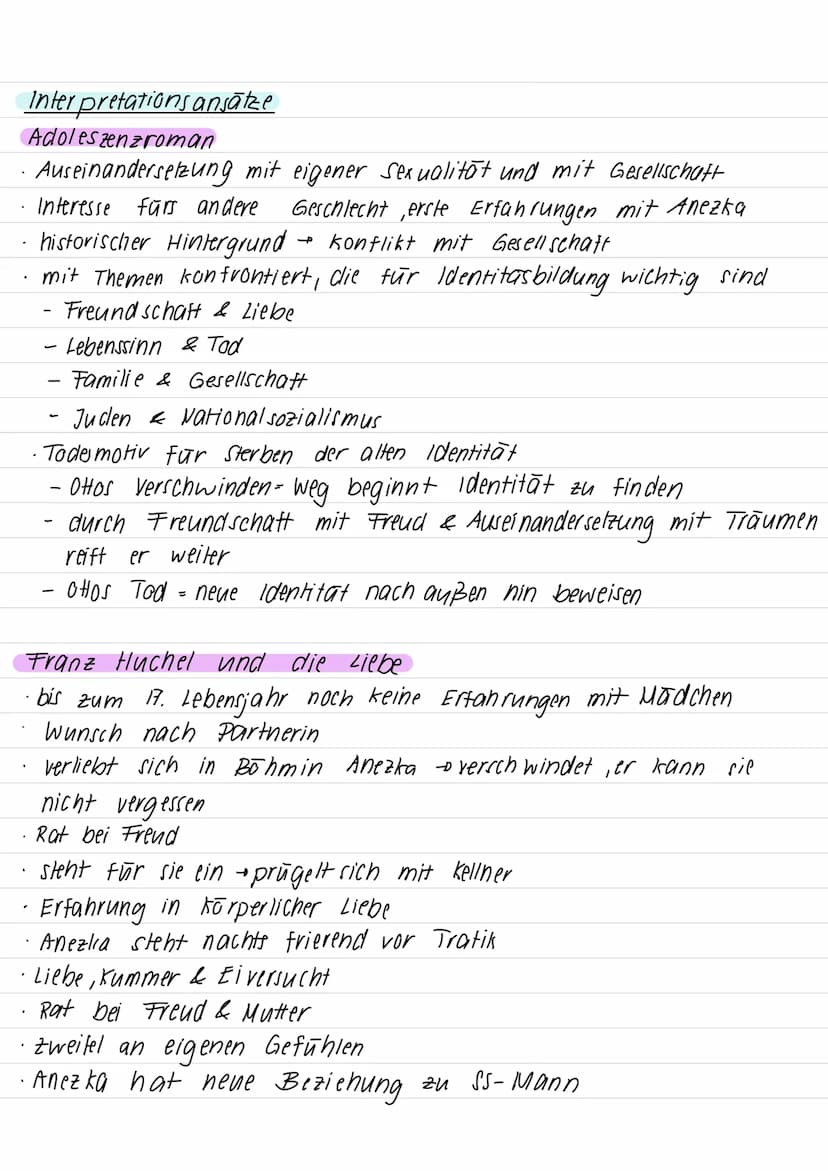 Interpretationsansätze
Adoleszenzroman
· Auseinandersetzung mit eigener Sexualität und mit Gesellschaft
· Interesse fürs andere Geschlecht, erste Erfahrungen mit Anezka
· historischer Hintergrund → Konflikt mit Gesellschaft
· mit Themen konfrontiert, die für Identitäsbildung wichtig sind
- Freundschaft & Liebe
- Lebenssinn & Tod
- Familie & Gesellschaft
- Juden & Nationalsozialismus
· Todesmotiv für Sterben der alten Identität
- Ottos Verschwinden = Weg beginnt Identität zu finden
- durch Freundschaft mit Freud & Auseinandersetzung mit Träumen
reift er weiter
- Ottos Tod = neue Identität nach außen hin beweisen
Franz Huchel und die Liebe
· bis zum 17. Lebensjahr noch keine Erfahrungen mit Mädchen
· Wunsch nach Partnerin
· verliebt sich in Böhmin Anezka → verschwindet, er kann sie
nicht vergessen
· Rat bei Freud
· steht für sie ein → prügelt sich mit Kellner
· Erfahrung in körperlicher Liebe
· Anezka steht nachts frierend vor Trafik
· Liebe, Kummer & Eiversucht
· Rat bei Freud & Mutter
· Zweifel an eigenen Gefühlen
· Anezka hat neue Beziehung zu SS-Mann